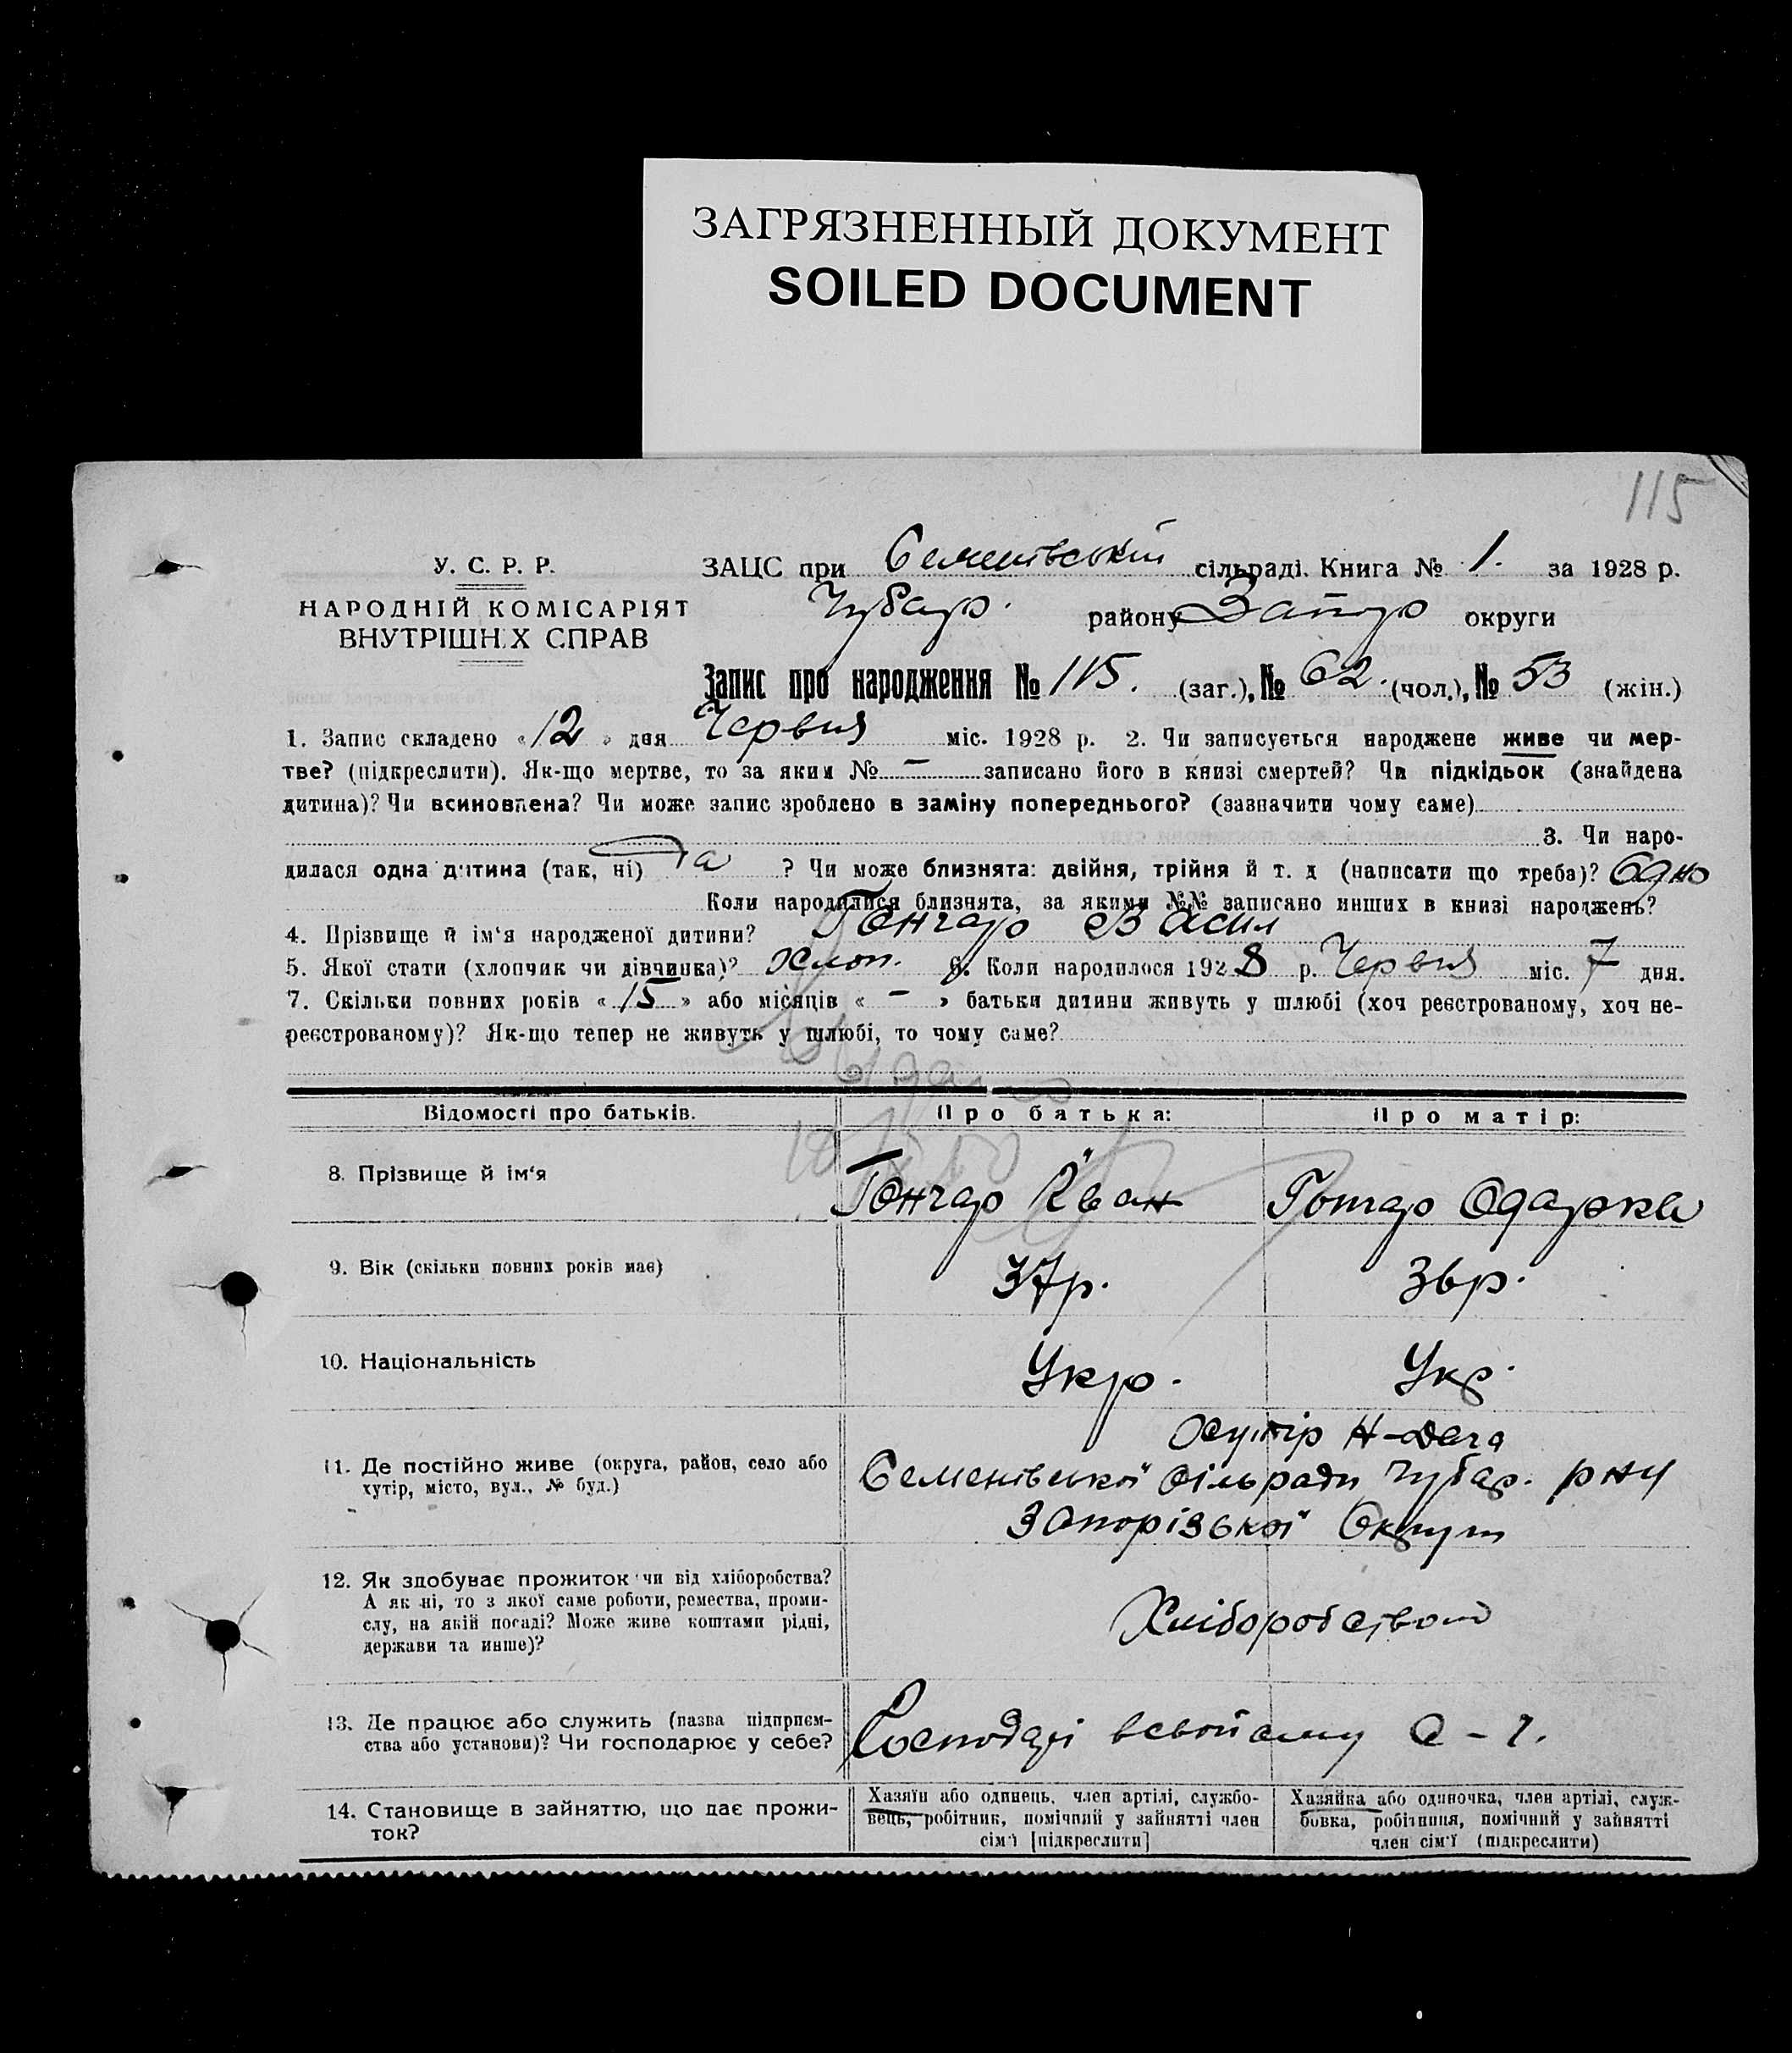 ЗАГРЯЗНЕННЫЙ ДОКУМЕНТ
SOILED DOCUMENT
115
У. С. Р. Р.
НАРОДНІЙ КОМІСАРІЯТ
ВНУТРІШН.Х СПРАВ
ЗАЦС при Семенівській сільраді. Книга № 1. за 1928 р.
Чубар. району Запор округи
Запис про народження № 115. (заг.), № 62. (чол.), № 53 (жін.)
1. Запис складено «12» дня Червня міс. 1928 р. 2. Чи записується народжене живе чи мер-
тве? (підкреслити). Як-що мертве, то за яким № — записано його в книзі смертей? Чи підкідьок (знайдена
дитина)? Чи всиновлена? Чи може запис зроблено в заміну попереднього? (зазначити чому саме)
3. Чи наро-
дилася одна дитина (так, ні) Та ? Чи може близнята: двійня, трійня й т. д (написати що треба)? Одно
Коли народилися близнята, за якими №№ записано инших в книзі народжень?
4. Прізвище й ім‘я народженої дитини? Гончар Васил
5. Якої стати (хлопчик чи дівчинка)? Хлоп. 6. Коли народилося 1928 р. Червня міс. 7 дня.
7. Скільки повних років «15» або місяців « — » батьки дитини живуть у шлюбі (хоч реєстрованому, хоч не-
реєстрованому)? Як-що тепер не живуть у шлюбі, то чому саме?
Відомості про батьків.
Про батька:
Про матір:
8. Прізвище й ім‘я
Гончар Іван
Гончар Одарка
9. Вік (скільки повних років має)
37р.
36р.
10. Національність
Укр.
Укр.
11. Де постійно живе (округа, район, село або
хутір, місто, вул., № буд.)
Хутір
Семенівської сільради Чубар. р-ну
Запорізької Округи
12. Як здобуває прожиток чи від хліборобства?
А як ні, то з якої саме роботи, ремества, проми-
слу, на якій посаді? Може живе коштами рідні,
держави та инше)?
Хліборобством
13. Де працює або служить (назва підприєм-
ства або установи)? Чи господарює у себе?
Господарі всвойому
14. Становище в зайняттю, що дає прожи-
ток?
Хазяїн або одинець, член артілі, службо-
вець, робітник, помічний у зайнятті член
сім‘ї [підкреслити]
Хазяйка або одиночка, член артілі, служ-
бовка, робітниця, помічний у зайнятті
член сім‘ї (підкреслити)